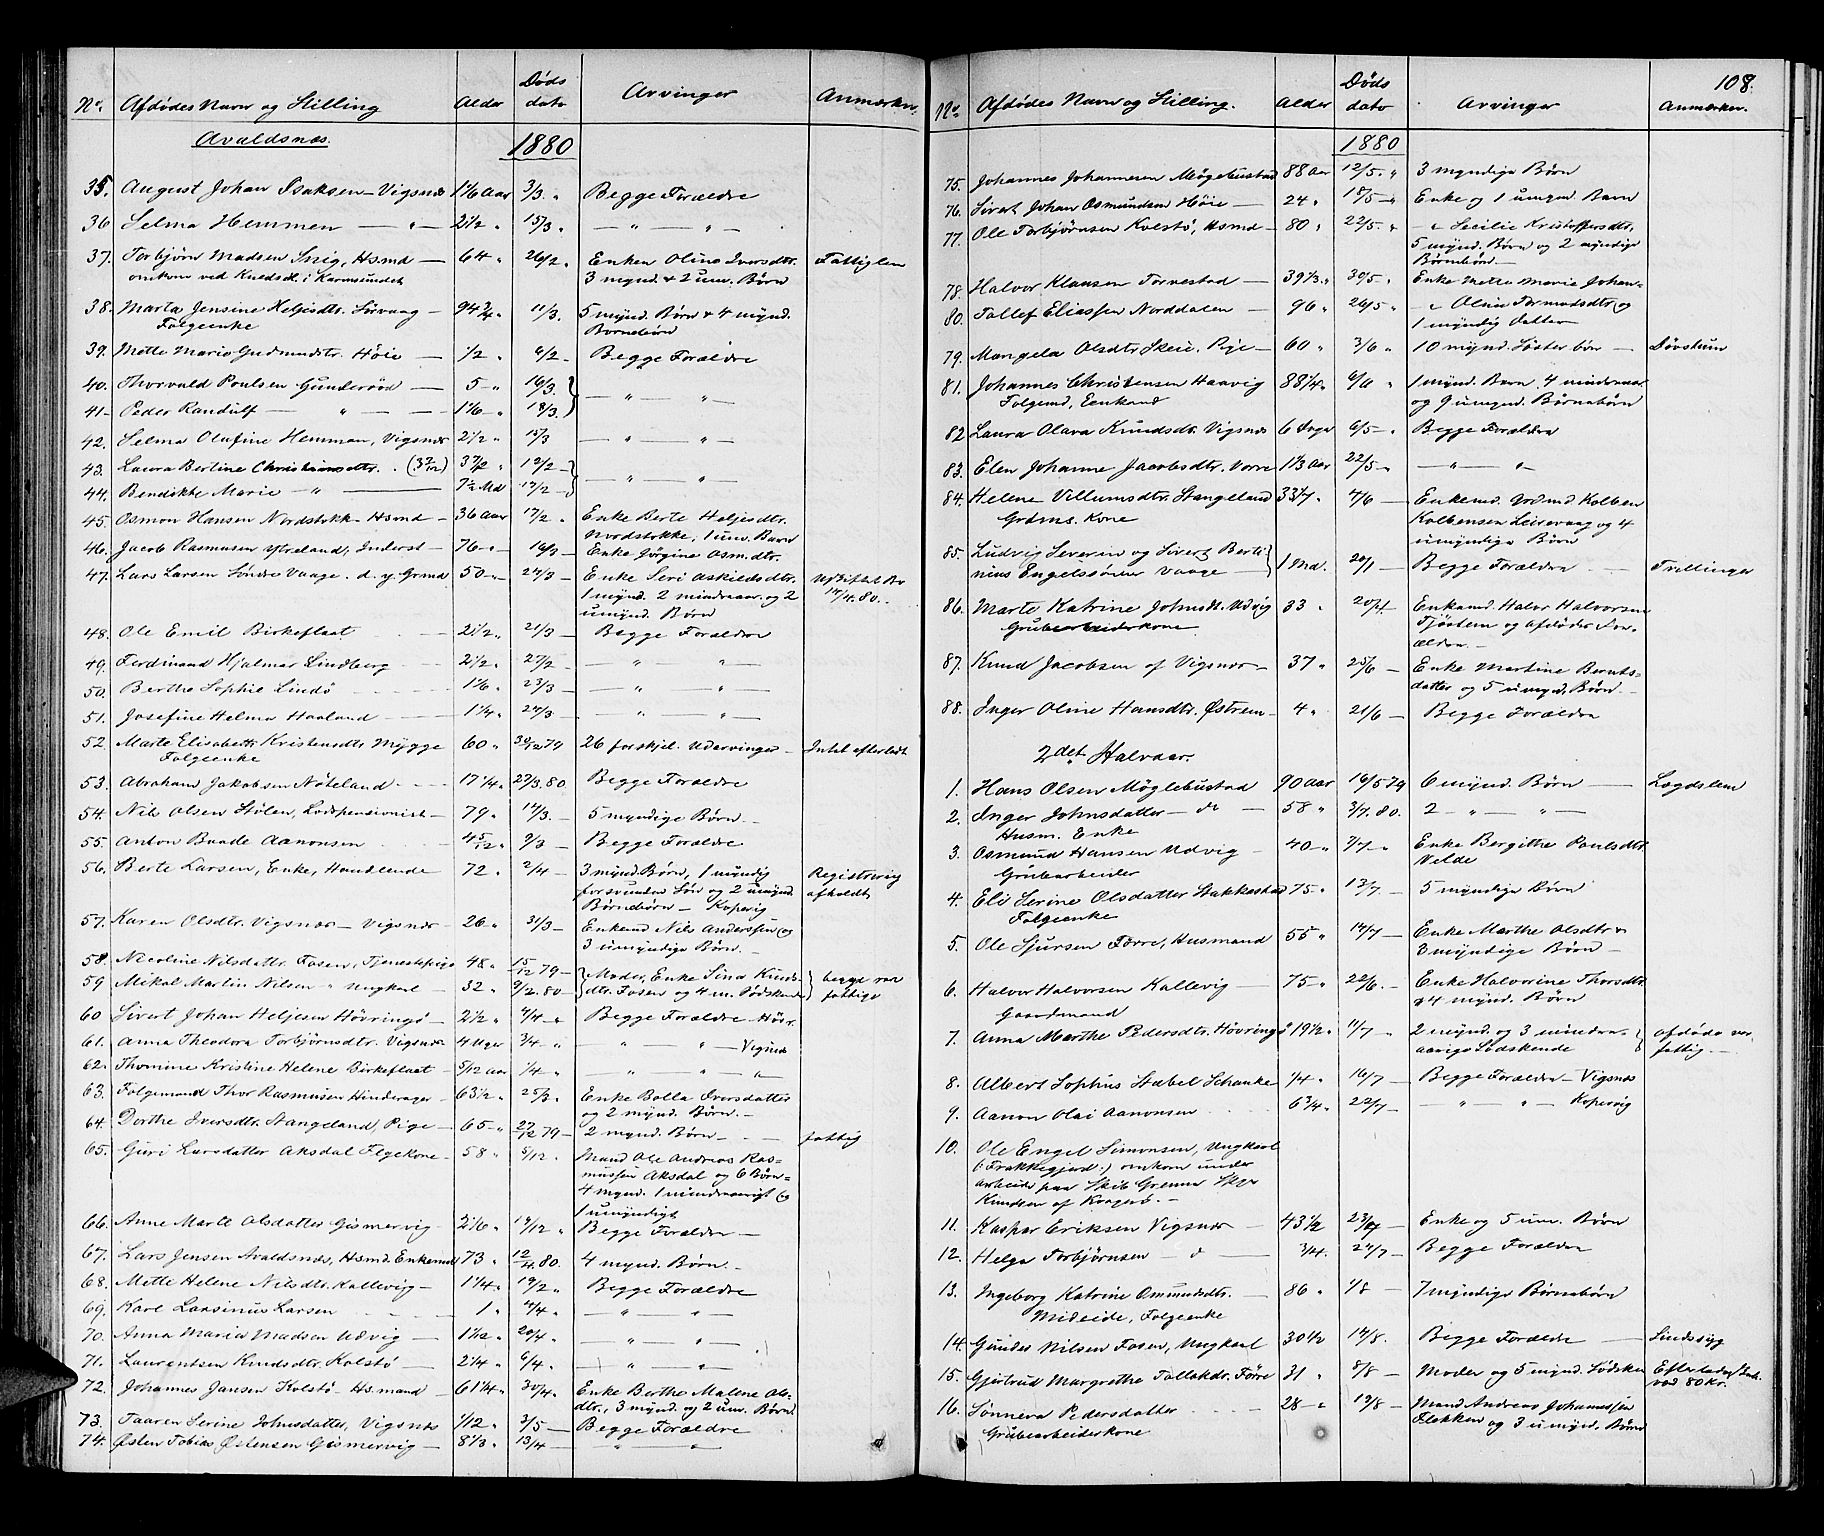 No. Afdødes Navn og Stilling Alder Døds dato Arvinger Anmærkn.
Avaldsnæs. 1880
35. August Johan Isaksen - Vigsnæs 1 1/6 Aar 3/3. " Begge Forældre
36 Selma Hemmen — " — 2 1/2 " 15/3 " — " — " —
37. Torbjørn Madsen Snig, Hsmd — 64 " 26/2 " Enken Oline Iversdtr. Fattiglem
omkom ved Kuldseil. i Karmsundet 3 mynd. & 2 um. Børn
38. Marta Jensine Heljesdtr. Sørvaag — 94 3/4 " 11/3. 5 mynd. Børn & 4 mynd.
Folgeenke Børnebørn
39. Mette Marie Gudmundstr. Høie — 1/2 " 6/2 — Begge Forældre
40. Thorvald Poulsen Gunderød — 5 — " 16/3.
41 — Peder Randulf — " — 1 1/6 — " 18/3. — " — " —
42. Selma Olufine Hemman, Vigsnæs 2 1/2 " 15/3 — " — "
43. Laura Bertine Christiansdtr. . (3 7/12) 3 7/12 " 12/2 —
44. Bendikte Marie — " — 7 1/2 Md 12/2 — — " — "
45. Osmon Hansen Nordstokk — Hsmd — 36 Aar 17/2 " Enke Berte Heljesdtr.
Nordstokke, 1 um. Barn
46. Jacob Rasmusen Ytreland, Inderst — 76 — " 16/3 — Enke Jørgine Osm.dtr.
47. Lars Larsen Søndre Vaage. d. y. Grmd 50 — " 24/3 — Enke Seri Askildsdtr.
1 mynd. 2 mindreaar. og 2 14/4. 80.
umynd. Børn
48. Ole Emil Birkeflaat 2 1/2 " 21/3 — Begge Forældre
49. Ferdinand Hjalmar Lindberg 2 1/2 " 27/2 — " — "
50. Berthe Sophie Lindø 1 1/6 " 23/3 — " — "
51. Josefine Helma Haaland — 1 1/4 " 24/3 — " — "
52. Marte Elisabeth Kristensdtr. Mygge 60 " 30/12 79 26 forskjel. Udarvinger — Intet efterladt
Folgeenke
53. Abraham Jakobsen Nøteland 17 1/4 " 27/3. 80 Begge Forældre
54. Nils Olsen Stølen, Lodspensionist — 79 " 14/3. — 5 myndige Børn —
55. Anton Baade Aanonsen 4 5/12 " 9/3 — Begge Forældre
56. Berte Larsen, Enke, Handlende 72 " 2/4 — 3 mynd. Børn, 1 myndig Registrering
forsvunden Søn og 2 umynd afholdt
Børnebørn — Kopervig
57. Karen Olsdtr. Vigsnæs — Vigsnæs 26 " 31/3 — Enkemd Nils Anderssen og
3 umyndige Børn. —
58. Nicoline Nilsdatter Fosen, Tjenestepige 48 " 15/12 79 — Moder, Enke Sina Knuds-
59 Mikal Martin Nilsen " Ungkarl — 32 " 9/2. 80 — dtr. Fosen og 4 m. Sødskende fattige
60 Sivert Johan Heljesen Høvringø — 2 1/2 " 4/4 — " Begge Forældre — Høvr.
61. Anna Theodora Torbjørnsdtr. Vigsnæs 4 Uger 3/4 — " " — " — Vigsnæs
62. Thomine Kristine Helene Birkeflaat — 5/12 Aar 1/4 — " — " — "
63. Folgemand Thor Rasmusen Hinderager — 63 1/2 " 25/3 — Enke Bolla Iversdatter
og 2 mynd. Børn. —
64. Dorthe Iversdtr. Stangeland, Pige — 65 — " 27/12 79 — 2 mynd. Børn — fattig
65. Guri Larsdatter Aksdal Flgekone — 58 " 5/12. " Mand Ole Andreas Ras-
mussen Aksdal og 6 Børn =
4 mynd. 1 mindreaarigt og
1 umyndigt
66. Anne Marte Olsdatter Gismervig — 2 1/6 " 19/12 " Begge Forældre —
67. Lars Jensen Avaldsnæs, Hsmd. Enkemd 73 " 12/4. 80. 4 mynd. Børn. —
68. Mette Helene Nilsdtr. Kallevig — 1 1/4 " 19/2 " Begge Forældre
69. Karl Larsinus Larsen 1 " 4/4. — " — "
70. Anna Maria Madsen Udvig — 1 1/12 " 20/4 — " — "
71. Laurentsen Knudsdtr. Kolstø — 2 1/4 " 6/4. — " — "
72. Johannes Jansen Kolstø — Hsmand — 61 1/4 " 30/4. Enke Berthe Malene Ols-
dtr., 3 mynd. og 2 um. Børn.
73. Taaren Serine Johnsdatter, Vigsnæs 1/12 " 3/5 — Begge Forældre
74. Østen Tobias Østensen Gismervig — 8 1/3 " 13/4 " — "
108.
No. Afdødes Navn og Stilling. Alder Døds dato Arvinger Anmærkn.
1880
75. Johannes Johannesen Møgebustad 88 Aar 12/5. " 3 myndige Børn
76. Sivert Johan Osmundsen Høie — 24 " 18/5 — " Enke og 1 umynd. Barn
77. Ole Torbjørnsen Kolstø, Hsmd — 80 " 22/5. " — " Cecilie Kristoffersdtr,
5 mynd. Børn og 2 myndige
Børnbørn —
78. Halvor Klausen Fornestad — 39 1/3. " 30/5. Enke Mette Marie Johan-
80. Tollef Eliassen Norddalen — 96 " 26/5 " — " Olina Tormodsdtr og
1 myndig datter
79. Mangela Olsdtr Skeie. Pige — 60 " 3/6 " 10 mynd. Søsterbør — Døvstum
81. Johannes Christensen Haavig 88 1/4 " 6/6 " 1 mynd. Barn. 4 mindreaar.
Folgemd, Enkemd og 9 umynd. Børnebørn
82 Laura Olava Knudsdtr. Vigsnæs 6 Dage 6/5 — " Begge Forældre
83. Elen Johanne Jacobsdtr. Vorre 1 1/3 Aar 22/5 — " — " — "
84. Helene Villumsdtr. Stangeland 33 1/7 " 4/6 — Enkemd. Kolben
Grdms. Kone Kolbensen Leirevaag og 4
umyndige Børn
85. Ludvig Severin og Sivert Berti-
nius Engelssønner Vaage — 1 Md. 20/1 — Begge Forældre — Trillinger
86. Marte Katrine Johnsd. Udvig 33 " 20/4 — Enkemd. Halvor Halvorsen
Grubearbeiderkone Tjøstem og afdødes For-
ældre. —
87. Knud Jacobsen af Vigsnæs — 37 " 25/6 — Enke Martine Bernts-
datter og 5 umynd. Børn —
88. Inger Oline Hansdtr. Østrem — 4 " 21/6 — Begge Forældre
2det Halvaar.
1. Hans Olsen Møglebustad 90 Aar 16/5 79 6 mynd. Børn — Lægdslem
2. Inger Johnsdatter — do — 58 " 3/7. 80. 2 — " — " —
Husm. Enke
3. Osmund Hansen Udvig — 40 — " 7/7 — " Enke Bergithe Poulsdtr
Grubearbeider Velde
4. Eli Serine Olsdatter Stakkestad 75 " 13/7 — 5 myndige Børn
Folgeenke
5. Ole Sjursen Førre, Husmand 55 " 14/7 — Enke Marthe Olsdtr &
3 myndige Børn —
6. Halvor Halvorsen Kallevig — 75 — " 22/6. — Enke Halvorine Thorsdtr
Gaardmand & 4 mynd. Børn
7. Anna Marthe Pedersdtr. Høvringø 19 1/2 " 11/7 — 2 mynd. og 3 mindre- afdøde var
aarige Sødskende fattig. —
8. Albert Sophus Stabel Schanke 1/4 " 16/7 — Begge Forældre — Vigsnæs
9. Aanon Olai Aanonsen 6 3/4 " 22/7 — " — " — Kopervig
10. Ole Engel Simonsen, Ungkarl
(Frakkegjerd.) omkom under
arbeide paa Skib Grenna Skpr
Knudsen af Kragerø. —
11. Kaspar Eriksen Vigsnæs — 43 1/2 " 23/7 — Enke og 5 um. Børn
12. Helga Torbjørnsen — do — 3/4. " 24/7 — Begge Forældre
13. Ingeborg Katrine Omundsdtr. 86 " 1/8 — 7 myndige Børnebørn
Mideide, Folgeenke
14. Gundes Nilsen Fosen, Ungkarl 30 1/2 " 14/8. — Begge Forældre — Sindssyg
15. Gjertrud Margrethe Tollaksdr. Førre 31 " 8/8 — Moder og 5 mynd. Sødsken
80 Kr.
16. Sønneva Pedersdatter 28 — " 19/8 — Mand Andreas Johannessen
Grubearbeiderkone Flokken og 3 umynd. Børn